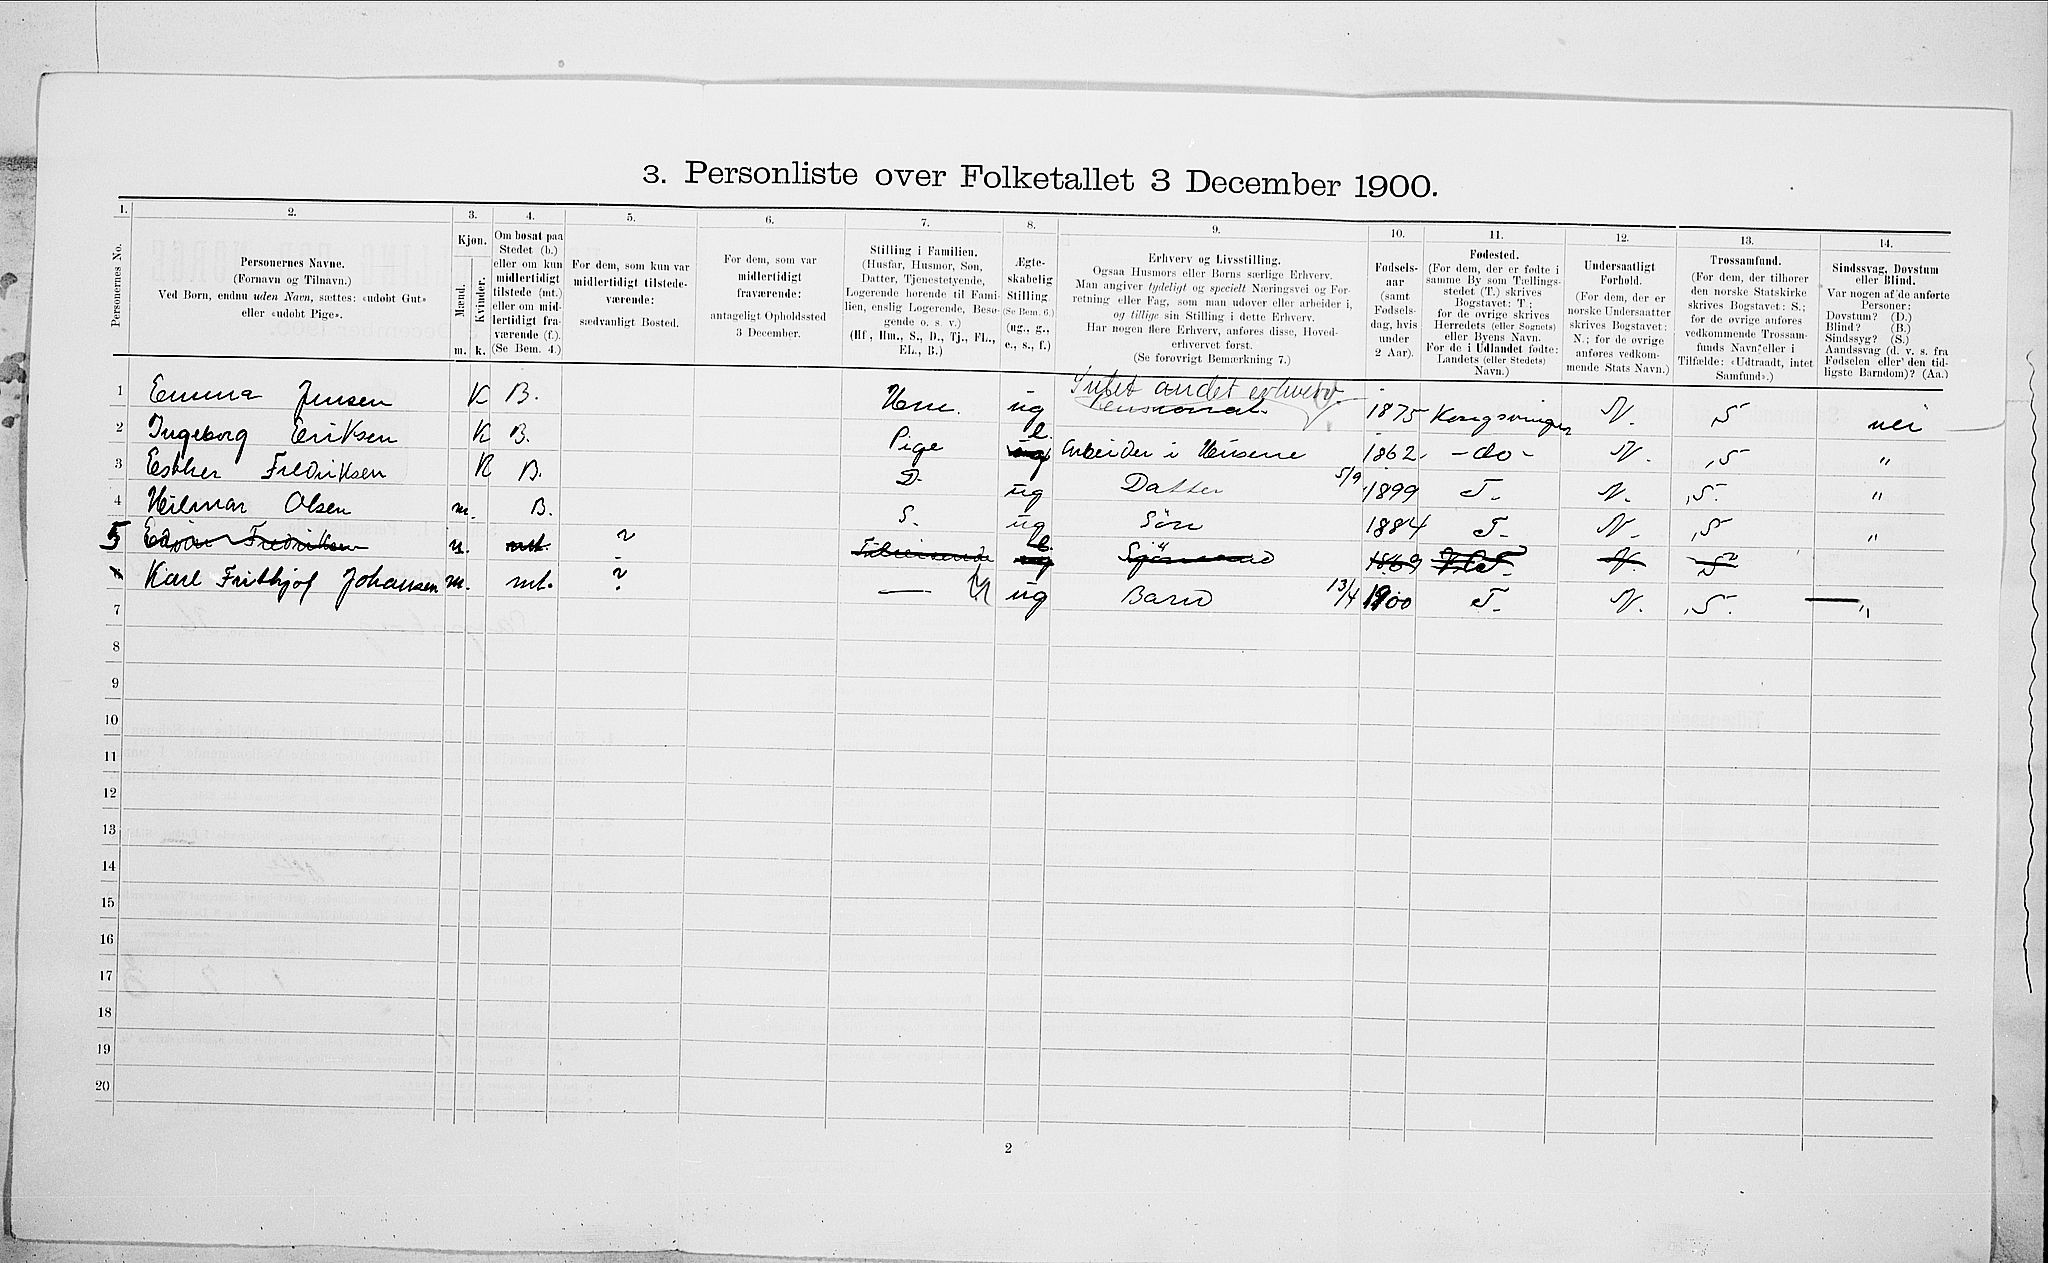 3. Personliste over Folketallet 3 December 1900.
1. 2. 3. 4. 5. 6. 7. 8. 9. 10. 11. 12. 13. 14.
Personernes No.
Personernes Navne.
(Fornavn og Tilnavn.)
Ved Børn, endnu uden Navn, sættes: «udøbt Gut»
eller «udøbt Pige».
Kjøn.
Mænd.
Kvinder.
m. k.
Om bosat paa
Stedet (b.)
eller om kun
midlertidigt
tilstede (mt.)
eller om mid-
lertidigt fra-
værende (f.).
(Se Bem. 4.)
For dem, som kun var
midlertidigt tilstede-
værende:
sædvanligt Bosted.
For dem, som var
midlertidigt
fraværende:
antageligt Opholdssted
3 December.
Stilling i Familien.
(Husfar, Husmor, Søn,
Datter, Tjenestetyende,
Logerende hørende til Fami-
lien, enslig Logerende, Besø-
gende o. s. v.)
(Hf., Hm., S., D., Tj., FL.,
EL., B.)
Ægte-
skabelig
Stilling
(Se Bem. 6.)
(ug., g.,
e., s., f.)
Erhverv og Livsstilling.
Ogsaa Husmors eller Børns særlige Erhverv.
Man angiver tydeligt og specielt Næringsvei og For-
retning eller Fag, som man udøver eller arbeider i,
og tillige sin Stilling i dette Erhverv.
Har nogen flere Erhverv, anføres disse, Hoved-
erhvervet først.
(Se forøvrigt Bemærkning 7.)
Fødsels-
aar
(samt
Fødsels-
dag, hvis
under
2 Aar).
Fødested.
(For dem, der er fødte i
samme By som Tællings-
stedet (T.) skrives
Bogstavet: T.;
for de øvrige skrives
Herredets (eller Sognets)
eller Byens Navn.
For de i Udlandet fødte:
Landets (eller Stedets)
Navn.)
Undersaatligt
Forhold.
(For dem, der er
norske Undersaatter
skrives Bogstavet:
N.; for de øvrige
anføres vedkom-
mende Stats Navn.)
Trossamfund.
(For dem, der tilhører
den norske Statskirke
skrives Bogstavet: S.;
for de øvrige anføres
vedkommende Trossam-
funds Navn eller i
Tilfælde: «Udtraadt, intet
Samfund».)
Sindssvag, Døvstum
eller Blind.
Var nogen af de anførte
Personer:
Døvstum? (D.)
Blind? (B.)
Sindssyg? (S.)
Aandssvag (d. v. s. fra
Fødselen eller den tid-
ligste Barndom)? (Aa.)
Intet andet erhverv.
1 Emma Jensen K B. Hm. ug 1875 Kongsvinger N. S nei
2 Ingeborg Eriksen K B. Pige e. ug Arbeider i Husene 1862 -do- N. S "
3 Esther Fredriksen K B. D. ug Datter 5/9 1899 T. N. S. "
4 Hilmar Olsen m. B. S. ug Søn 1884 T. N. S "
5 Edvar Fredriksen m. mt. ? Tilreisende ug Sjömand 1869 N S
Karl Frithjof Johansen m. mt. ? — ug Barn 13/4 1900 T. N. S. "
7
8
9
10
11
12
13
14
15
16
17
18
19
20
2